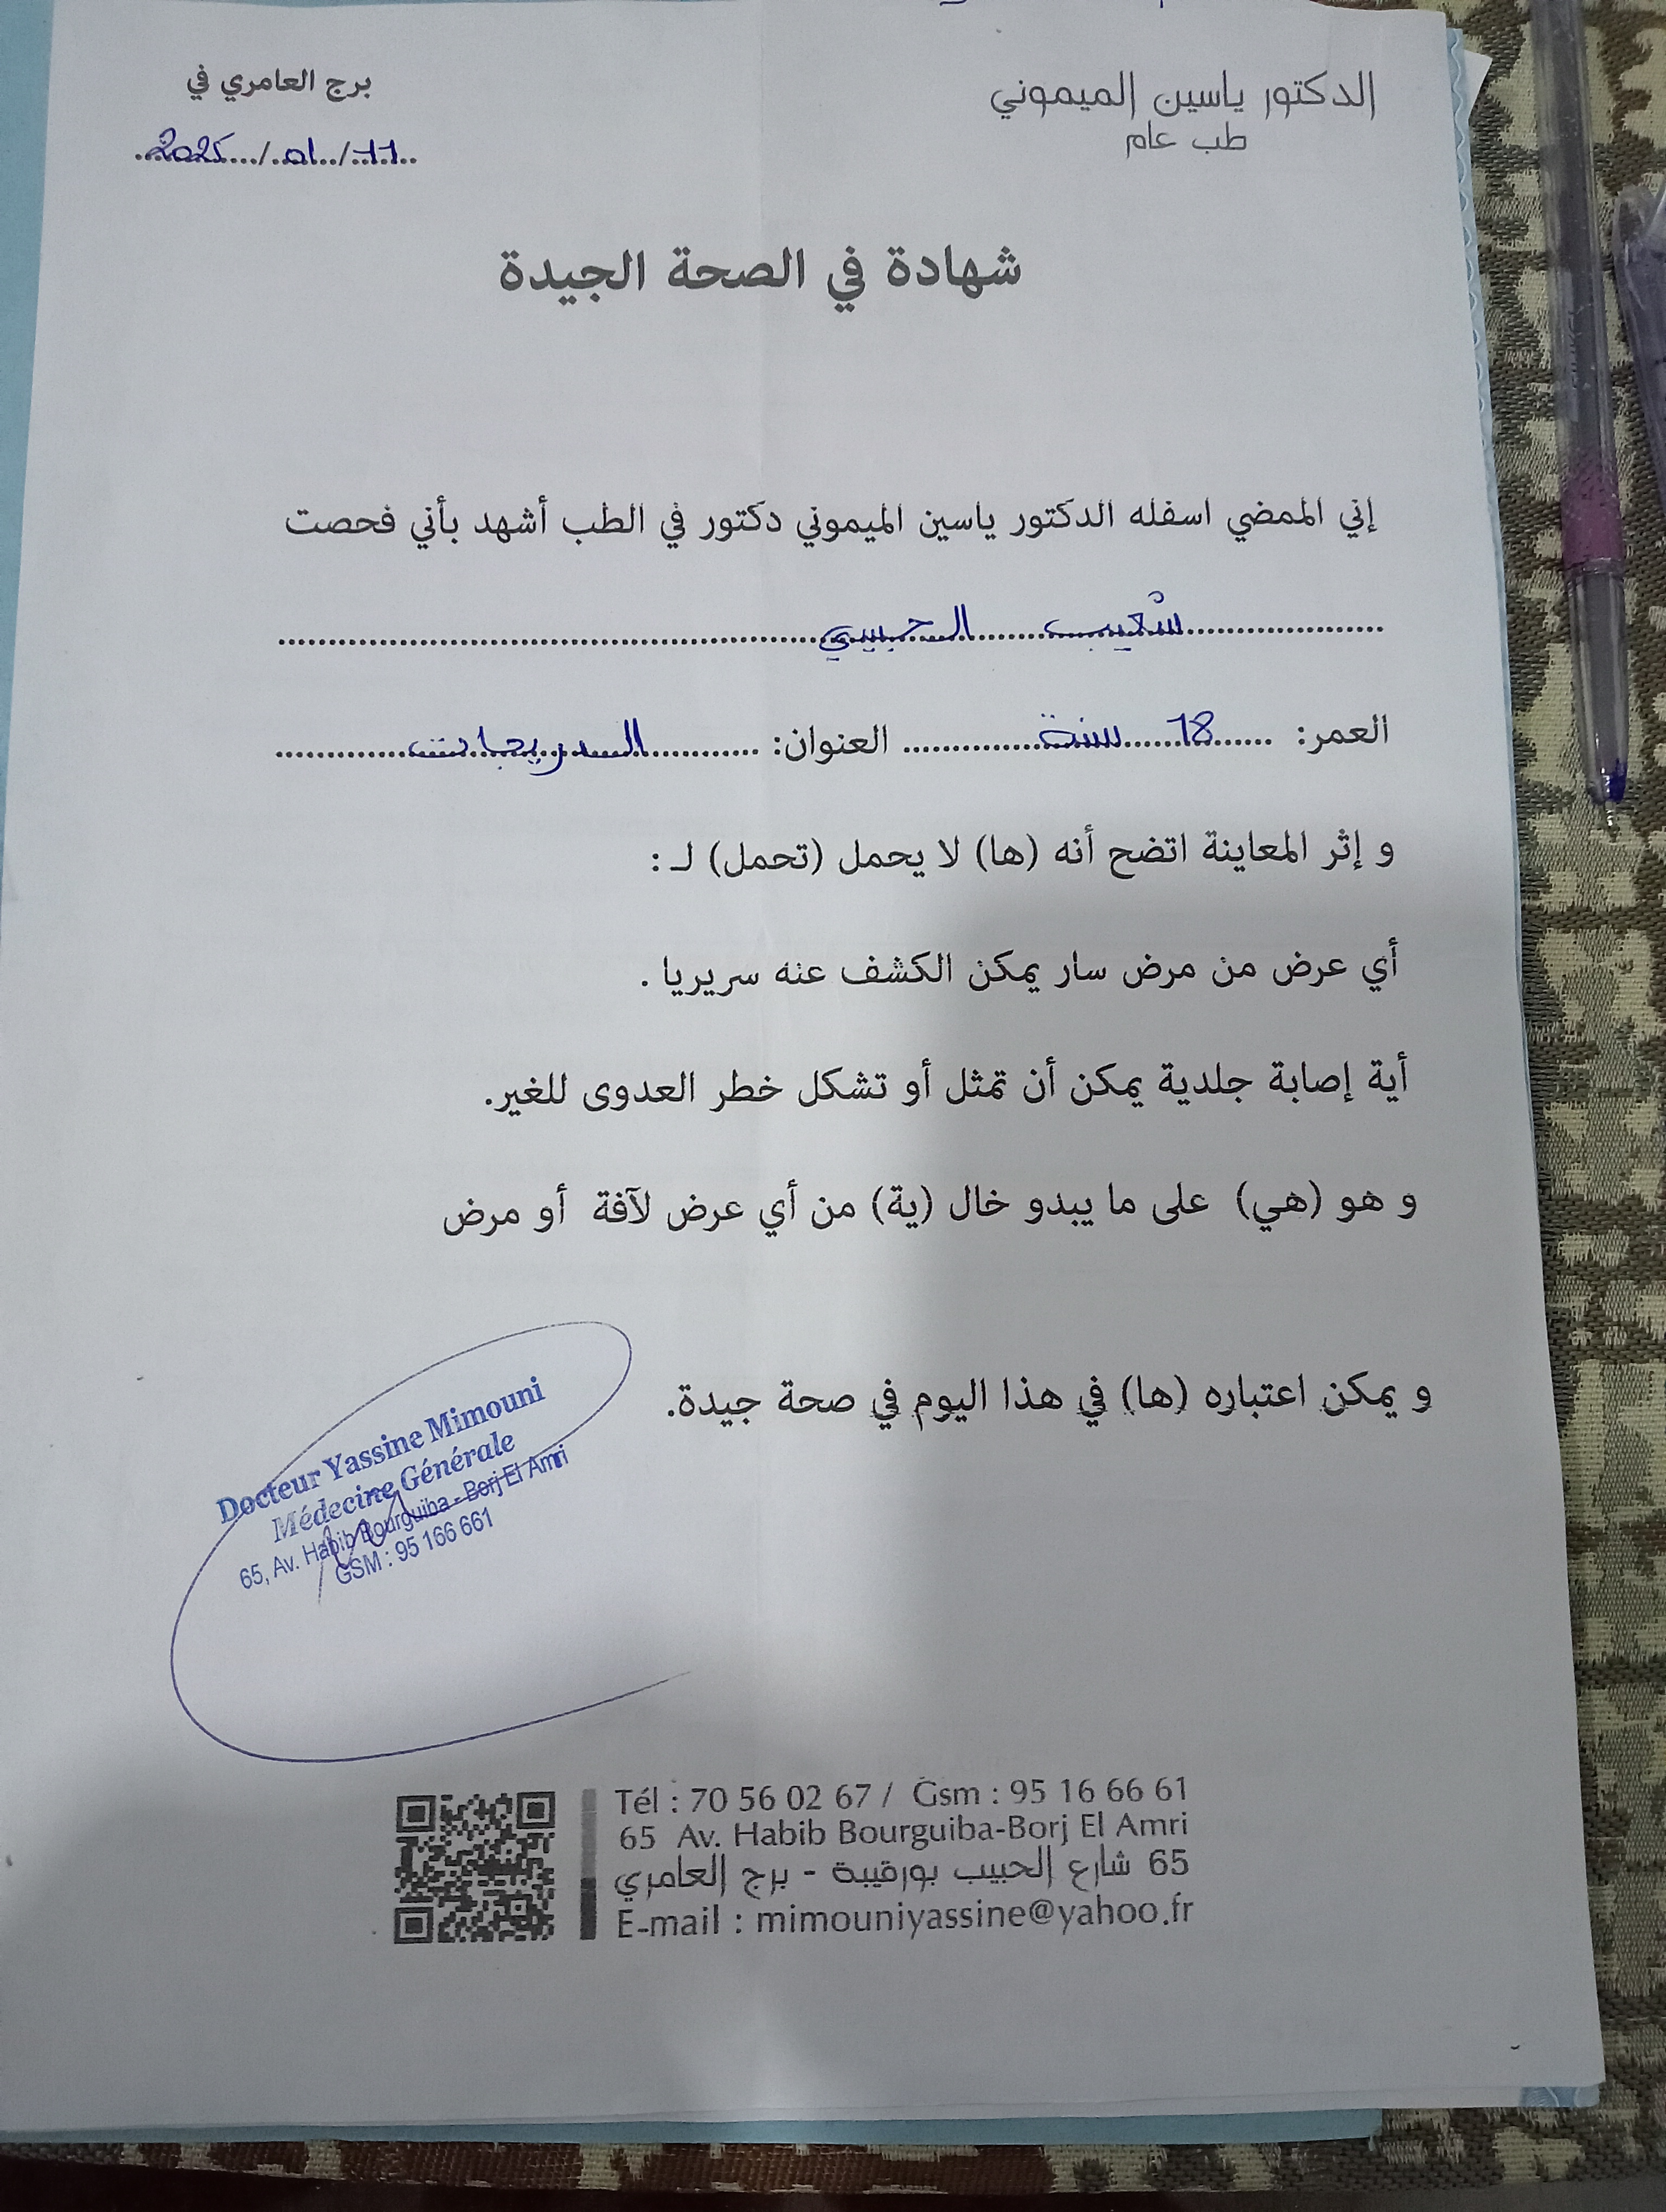 الدكتور ياسين الميموني
طب عام
برج العامري في
11/01/2025
شهادة في الصحة الجيدة
إني الممضي اسفله الدكتور ياسين الميموني دكتور في الطب أشهد بأني فحصت
شعيب
العمر: 18 سنة العنوان:
و إثر المعاينة اتضح أنه (ها) لا يحمل (تحمل) لـ :
أي عرض من مرض سار يمكن الكشف عنه سريريا .
أية إصابة جلدية يمكن أن تمثل أو تشكل خطر العدوى للغير.
و هو (هي) على ما يبدو خال (ية) من أي عرض لآفة أو مرض
و يمكن اعتباره (ها) في هذا اليوم في صحة جيدة.
Docteur Yassine Mimouni
Médecine Générale
65, Av. Habib Bourguiba - Borj El Amri
GSM : 95 166 661
Tél : 70 56 02 67 / Gsm : 95 16 66 61
65 Av. Habib Bourguiba-Borj El Amri
65 شارع الحبيب بورقيبة - برج العامري
E-mail : mimouniyassine@yahoo.fr